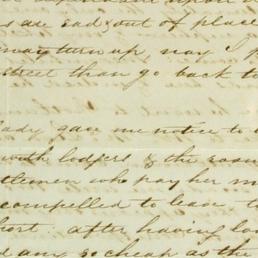 upon
s are sad; out of place
may turn up, nay I p
street than go back to
lady gave me notice to
with lodgers & the room
tlemen who pay her m
compelled to leave t
hort. after having loo
d any so cheap as the